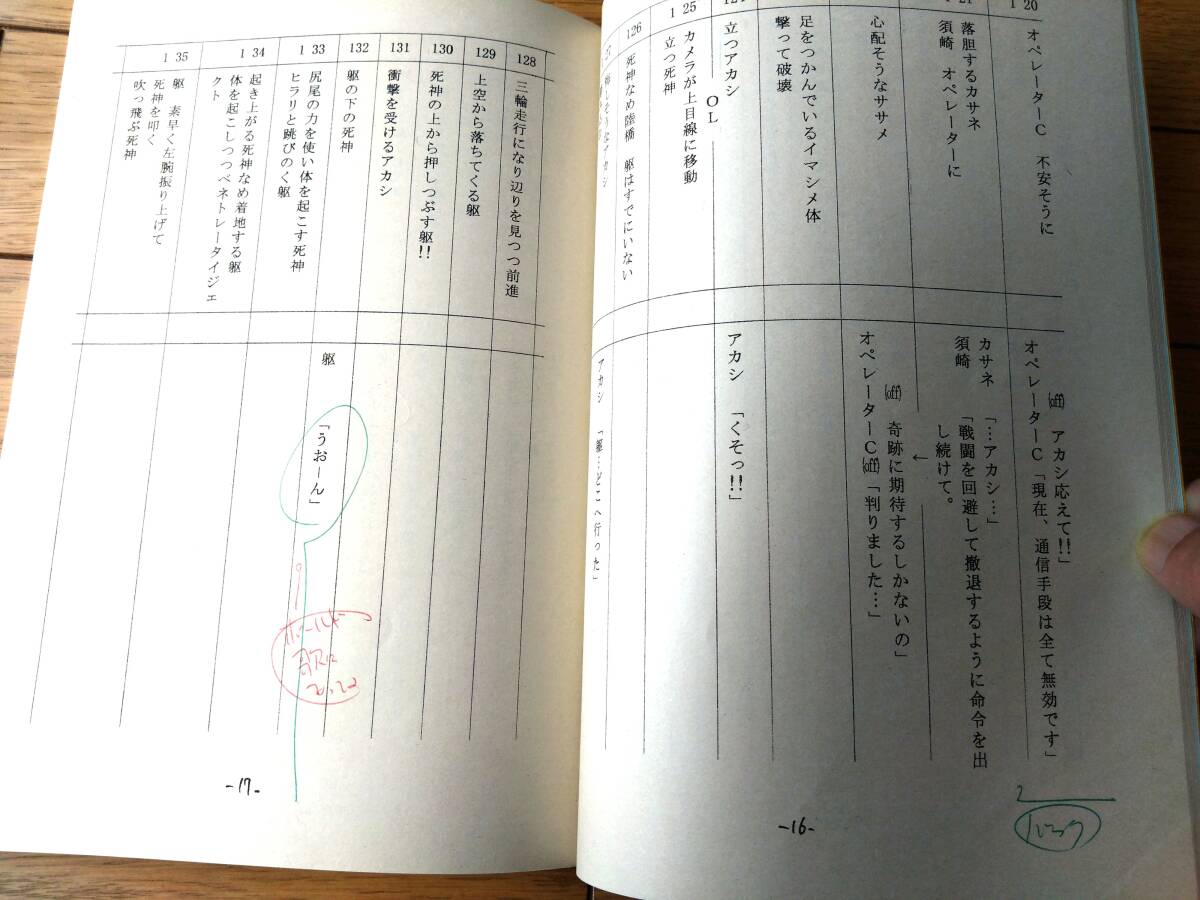 1 20
オペレーターC 不安そうに
(off) アカシ応えて!!」
オペレーターC「現在、通信手段は全て無効です」
落胆するカサネ
須崎 オペレーターに
カサネ 「…アカシ…」
須崎 「戦闘を回避して撤退するように命令を出
し続けて。
心配そうなササメ
←
(off) 奇跡に期待するしかないの」
オペレーターC(off)「判りました…」
足をつかんでいるイマシメ体
撃って破壊
立つアカシ
OL
アカシ 「くそっ!!」
1 25
カメラが上目線に移動
立つ死神
126
死神なめ陸橋 躯はすでにいない
アカシ 「躯…どこへ行った」
-16-
128
三輪走行になり辺りを見つつ前進
129
上空から落ちてくる躯
130
死神の上から押しつぶす躯!!
131
衝撃を受けるアカシ
132
躯の下の死神
1 33
尻尾の力を使い体を起こす死神
ヒラリと跳びのく躯
躯 「うおーん」
1 34
起き上がる死神なめ着地する躯
体を起こしつつベネトレータイジェ
クト
1 35
躯 素早く左腕振り上げて
死神を叩く
吹っ飛ぶ死神
-17-